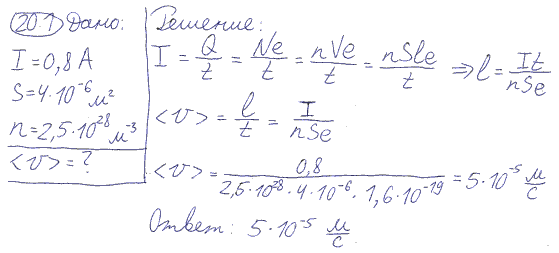 20.1 Дано:
I = 0,8 А
S = 4·10⁻⁶ м²
n = 2,5·10²⁸ м⁻³
<v> = ?
Решение:
I = Q/t = Ne/t = nVe/t = nSle/t ⇒ l = It/nSe
<v> = l/t = I/nSe
<v> = 0,8/2,5·10²⁸·4·10⁻⁶·1,6·10⁻¹⁹ = 5·10⁻⁵ м/с
Ответ: 5·10⁻⁵ м/с